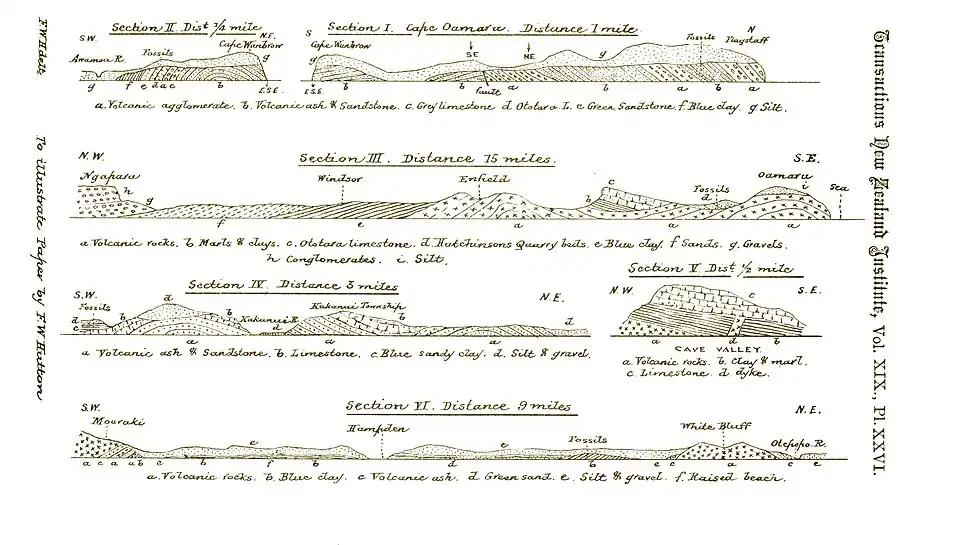 Section II Dist 3/4 mile
Section I. Cape Oamaru. Distance 1 mile.
S.W. N.E. S N
Awamoa R. Fossils Cape Wanbrow Cape Wanbrow SE NE Fossils Flagstaff
g g g g
g f e d a c b E.S.E. E.S.E. b b fault a b a b a
a. Volcanic agglomerate. b. Volcanic ash & Sandstone. c. Grey limestone d. Ototara L. e Green Sandstone. f. Blue clay. g. Silt.
Section III. Distance 15 miles.
N.W. S.E.
Ngapara Windsor Enfield Fossils Oamaru Sea
h g c b d i
f e a a a
a Volcanic rocks. b. Marls & clays. c. Ototara limestone. d. Hutchinsons Quarry beds. e Blue clay. f Sands. g. Gravels.
h Conglomerates. i. Silt.
Section IV. Distance 3 miles
S.W. N.E.
Fossils Kakanui R Kakanui Township
d c b d b d b d
a a a
a Volcanic ash & Sandstone. b. Limestone. c. Blue sandy clay. d. Silt & gravel.
Section V Dist 1/2 mile
N.W. S.E.
c
a d b
CAVE VALLEY.
a. Volcanic rocks. b. Clay & marl.
c. Limestone. d dyke.
Section VI. Distance 9 miles
S.W. N.E.
Mouraki Hampden Fossils White Bluff Otepopo R.
e e
a c a u b c b f b d b e c a c e
a. Volcanic rocks. b. Blue clay. c Volcanic ash. d Green sand. e. Silt & gravel. f. Raised beach.
F.W.H delt
To illustrate Paper by F.W Hutton
Transactions New Zealand Institute, Vol. XIX., Pl. XXVI.